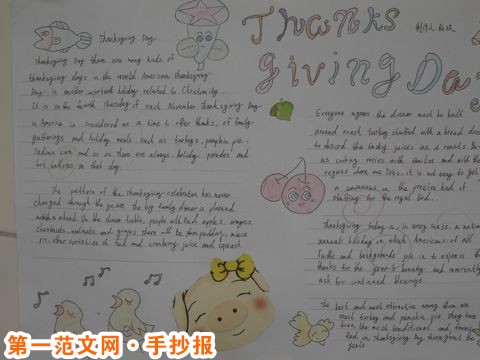 Thanks
Giving Da
制作人:
Thanksgiving Day
Thanksgiving Day there are many kinds of
thanksgiving days in the world. American Thanksgiving
Day is another important holiday related to Christianity.
It is on the fourth Thursday of each November. Thanksgiving Day
in America is considered as a time to offer thanks, of family
gatherings and holiday meals. such as turkeys, pumpkin pie,
Indian corn and so on. There are always holiday parades and
hot balloons on that day.
The pattern of the Thanksgiving celebration has never
changed through the years. The big family dinner is planned
months ahead. On the dinner table, people will find apples, oranges,
chestnuts, walnuts and grapes, there will be plum pudding, mince
pie, other varieties of food and cranberry juice and squash.
Everyone agrees the dinner must be built
around roast turkey stuffed with a bread dres
to absorb the tasty juices as it roasts. But
as cooking varies with families and with the
regions where one lives, it is not easy to get
a consensus on the precise kind of
stuffing for the royal bird.
Thanksgiving today is, in every sense, a nation
annual holiday on which Americans of all
faiths and backgrounds join in to express the
thanks for the year's bounty and reverently
ask for continued blessings.
The best and most attractive among them are
roast turkey and pumpkin pie, they have
been the most traditional and favorite
food on Thanksgiving Day throughout the
years
第一范文网·手抄报